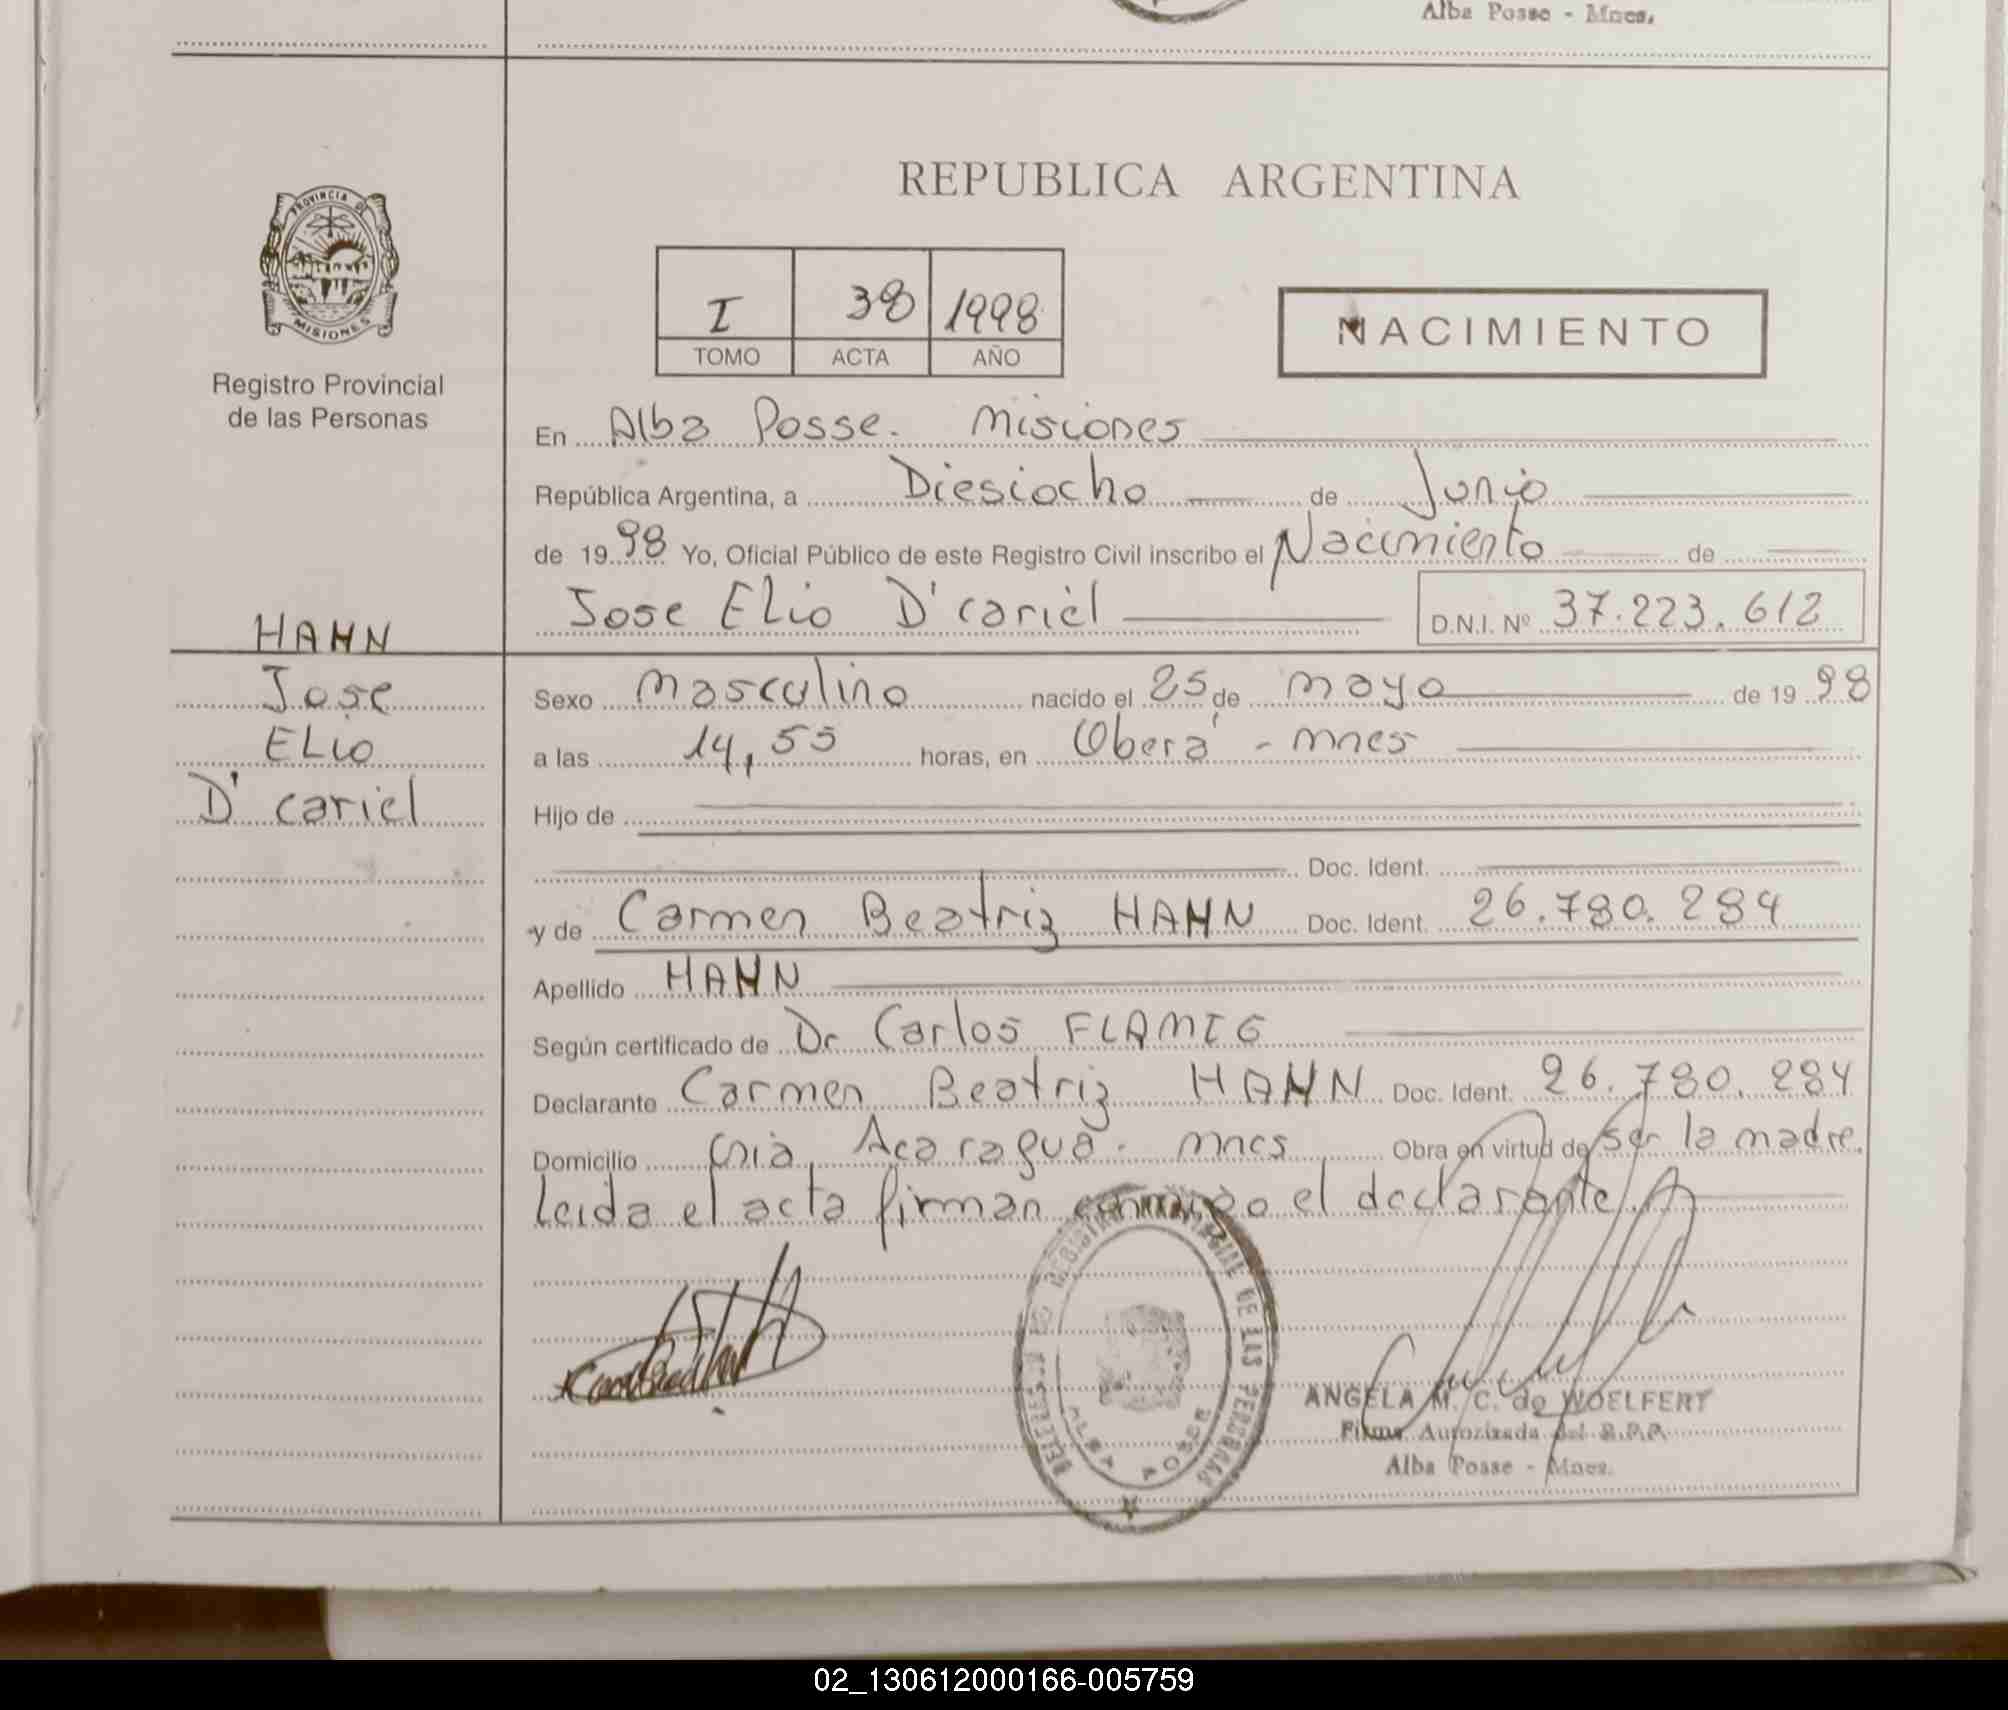 Alba Posse - Mnes.
PROVINCIA DE
MISIONES
Registro Provincial
de las Personas
REPUBLICA ARGENTINA
I 38 1998
TOMO ACTA AÑO
NACIMIENTO
En Alba Posse. Misiones
República Argentina, a Diesiocho de Junio
de 1998 Yo, Oficial Público de este Registro Civil inscribo el Nacimiento de
Jose Elio D'cariel D.N.I. Nº 37.223.612
HAHN
Jose
ELio
D'cariel
Sexo masculino nacido el 25 de mayo de 1998
a las 14,55 horas, en Oberá - mnes
Hijo de
Doc. Ident.
y de Carmen Beatriz HAHN Doc. Ident. 26.780.284
Apellido HAHN
Según certificado de Dr Carlos FLAMIG
Declarante Carmen Beatriz HAHN Doc. Ident. 26.780.284
Domicilio Cnia Acaragua. mnes Obra en virtud de ser la madre.
Leida el acta firman conmigo el declarante
REGISTRO PROVINCIAL DE LAS PERSONAS
ALBA POSSE
ANGELA M. C. de WOELFERT
Firma Autorizada del R.P.P.
Alba Posse - Mnes.
02_130612000166-005759